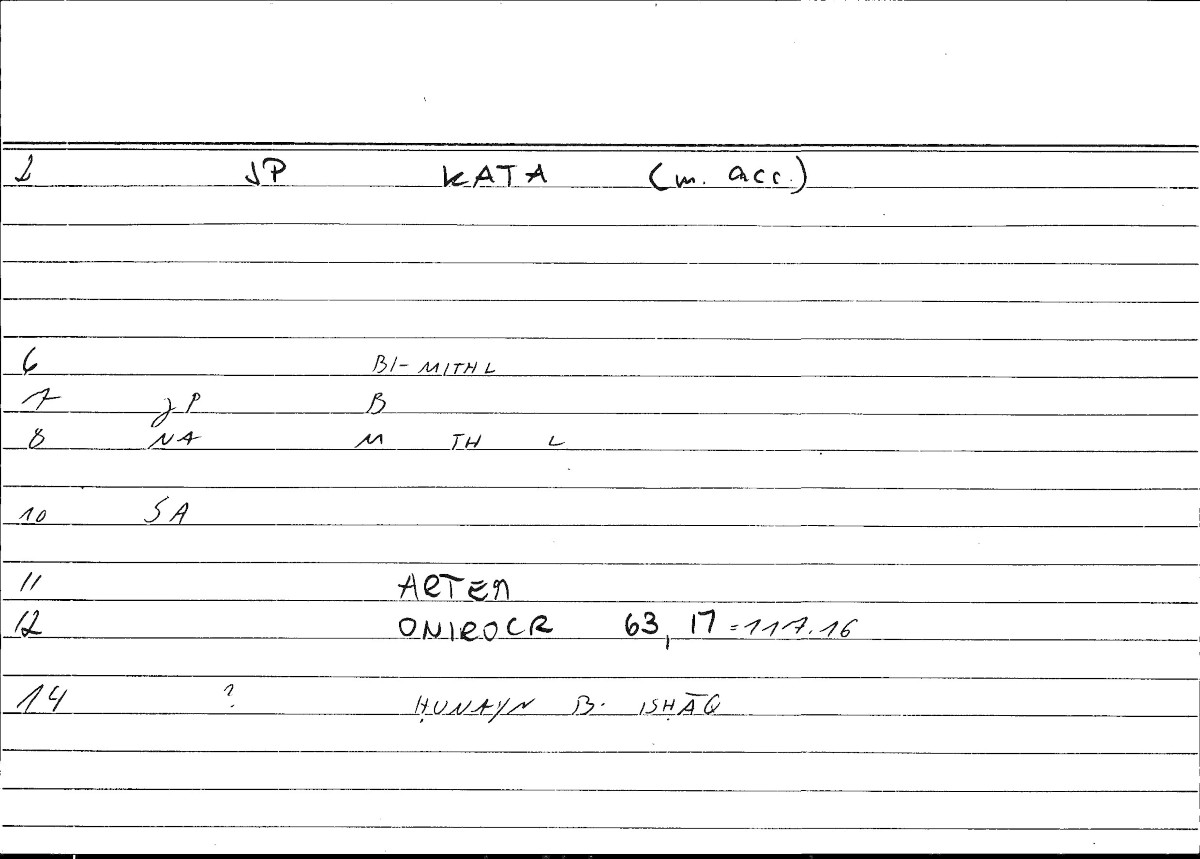 1 JP KATA (m. acc.)
6 BI-MITHL
7 JP B
8 NA M TH L
10 SA
11 ARTEM
12 ONIROCR 63, 17 = 117.16
14 ? ḤUNAYN B. ISḤĀQ